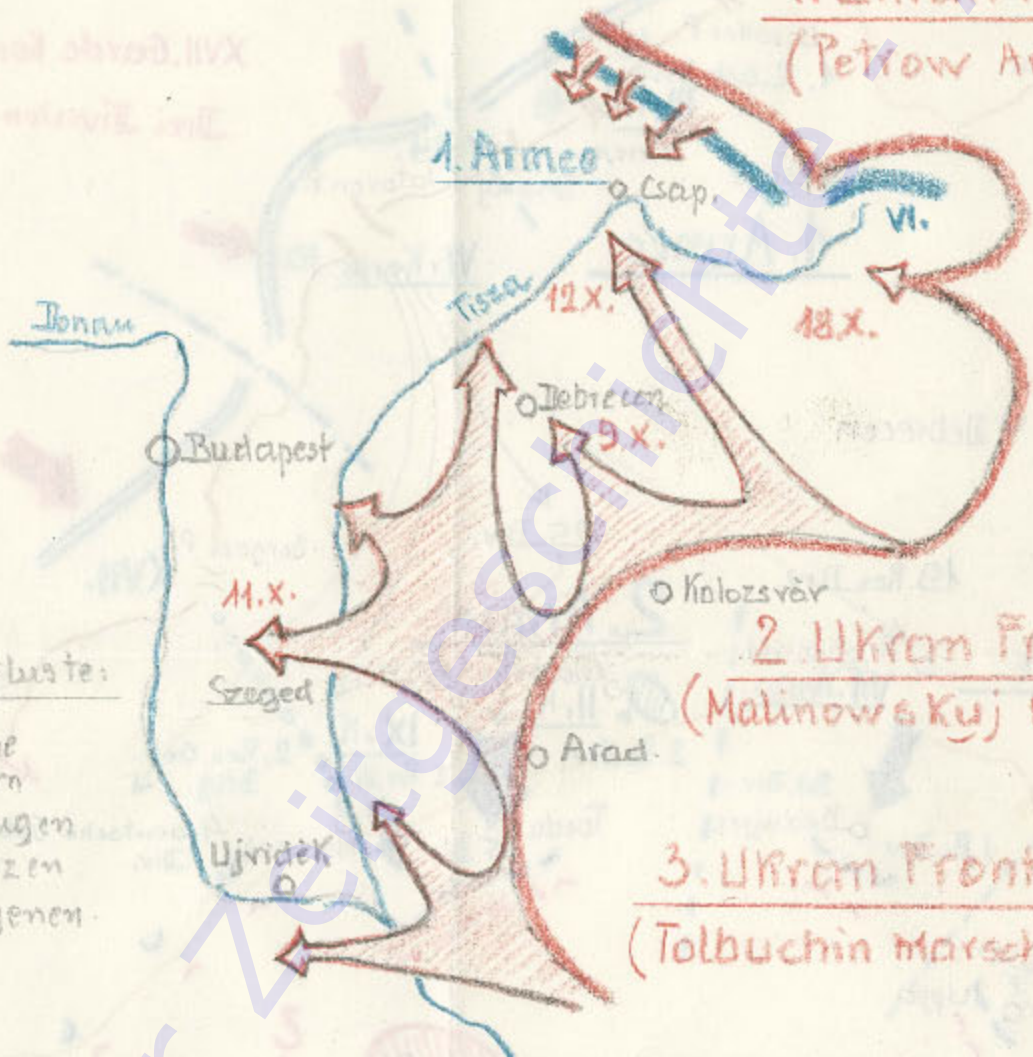 (Petrow Ar
1. Armee
Csap.
VI.
Tisza
12X.
18.X.
Donau
Debrecen
9.X.
Budapest
11.X.
Kolozsvár
2 Ukram Fr
(Malinowskuj
luste:
Szeged
Arad.
ugen
zen
genen.
Ujvidék
3. Ukram Front
(Tolbuchin Marsch
Zeitgeschichte